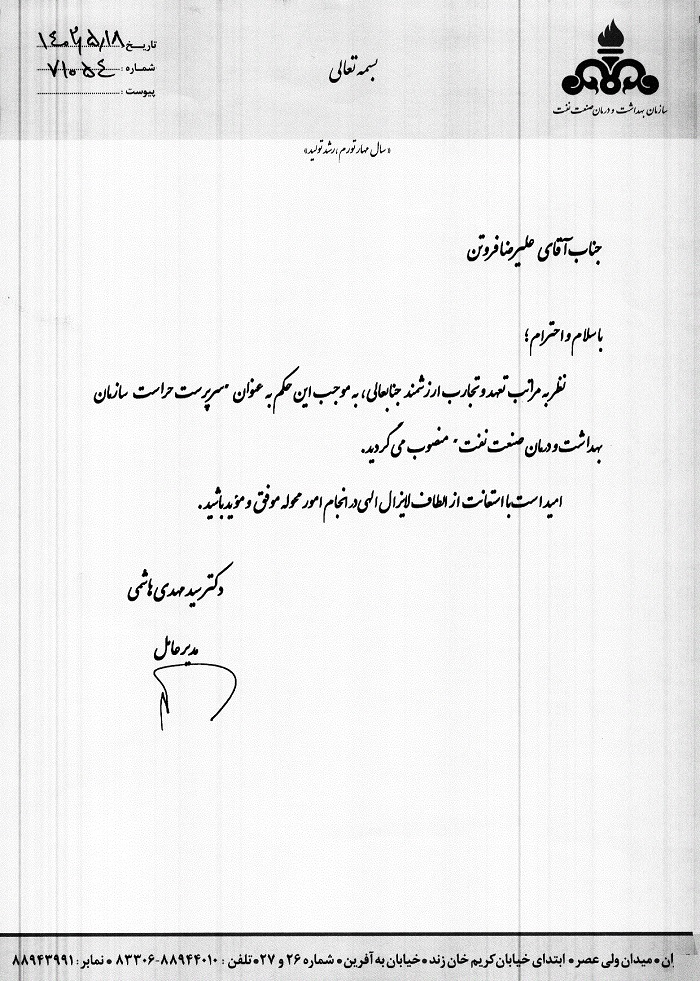 بسمه تعالی
سازمان بهداشت و درمان صنعت نفت
تاریخ: ۱۴۰۲/۵/۱۸
شماره: ۷۱۰۵۴
پیوست:
«سال مهار تورم، رشد تولید»
جناب آقای علیرضا فروتن
با سلام و احترام؛
نظر به مراتب تعهد و تجارب ارزشمند جنابعالی، به موجب این حکم به عنوان "سرپرست حراست سازمان
بهداشت و درمان صنعت نفت" منصوب می گردید.
امید است با استعانت از الطاف لایزال الهی در انجام امور محوله موفق و مؤید باشید.
دکتر سید مهدی هاشمی
مدیر عامل
ان • میدان ولی عصر • ابتدای خیابان کریم خان زند • خیابان به آفرین • شماره ۲۶ و ۲۷ • تلفن : ۸۸۹۴۴۰۱۰-۸۳۳۰۶ • نمابر: ۸۸۹۴۳۹۹۱